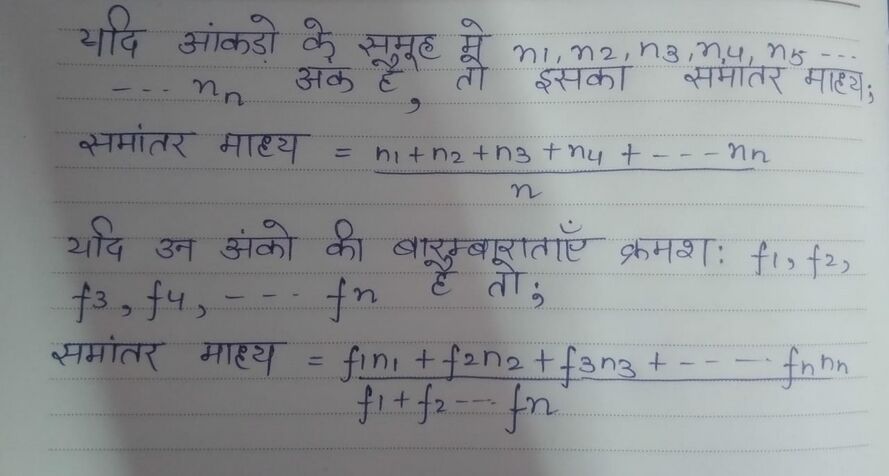 यदि आंकडो के समूह मे n1, n2, n3, n4, n5 ---
--- nn अंक है, तो इसका समांतर माध्य;
समांतर माध्य = n1 + n2 + n3 + n4 + --- nn
n
यदि उन अंको की बारम्बारताएँ क्रमश: f1, f2,
f3, f4, --- fn है तो;
समांतर माध्य = f1n1 + f2n2 + f3n3 + ---- fnnn
f1 + f2 --- fn